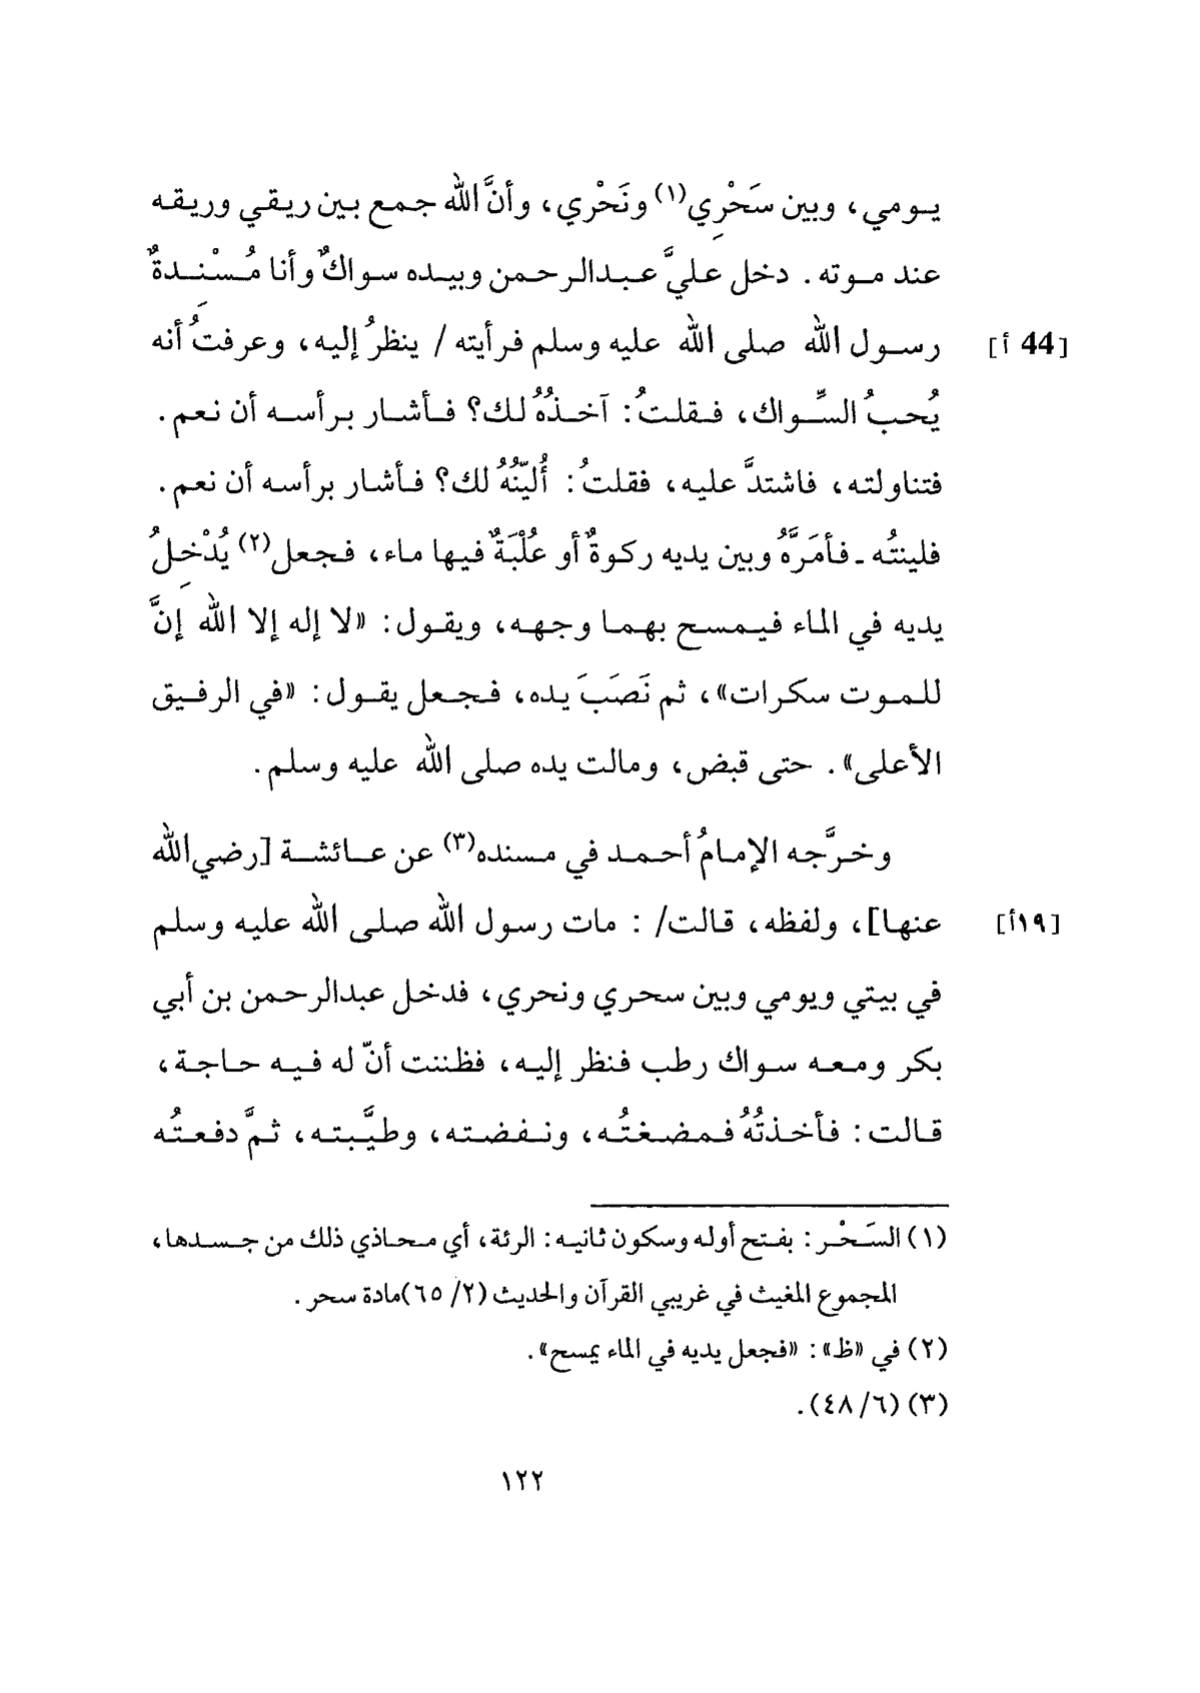 يـومي، وبين سَحْرِي(١) ونَحْري، وأنَّ الله جمع بين ريقي وريقه
عند موته . دخل عليَّ عبدالرحمن وبيده سواكٌ وأنا مُسْنِدةٌ
رسول الله صلى الله عليه وسلم فرأيته / ينظرُ إليه، وعرفتُ أنه
[44 أ]
يُحِبُ السِّواك، فقلتُ: آخذُهُ لك؟ فأشار برأسه أن نعم .
فتناولته، فاشتدَّ عليه، فقلتُ: أُليّنُهُ لك؟ فأشار برأسه أن نعم .
فلينتُه ـ فأمَرَّهُ وبين يديه ركوةٌ أو عُلْبَةٌ فيها ماء، فجعل(٢) يُدْخِلُ
يديه في الماء فيمسح بهما وجهه، ويقول: «لا إله إلا الله إنَّ
للموت سكرات»، ثم نَصَبَ يده، فجعل يقول: «في الرفيق
الأعلى» . حتى قبض، ومالت يده صلى الله عليه وسلم .
وخرَّجه الإمامُ أحمد في مسنده(٣) عن عائشة [رضي الله
عنها]، ولفظه، قالت/ : مات رسول الله صلى الله عليه وسلم
[١٩أ]
في بيتي ويومي وبين سحري ونحري، فدخل عبدالرحمن بن أبي
بكر ومعه سواك رطب فنظر إليه، فظننت أنّ له فيه حاجة،
قالت: فأخذتُهُ فمضغتُه، ونفضته، وطيَّبته، ثمَّ دفعتُه
(١) السَحْر: بفتح أوله وسكون ثانيه: الرئة، أي محاذي ذلك من جسدها،
المجموع المغيث في غريبي القرآن والحديث (٢/ ٦٥) مادة سحر .
(٢) في «ظ»: «فجعل يديه في الماء يمسح» .
(٣) (٦/ ٤٨) .
١٢٢